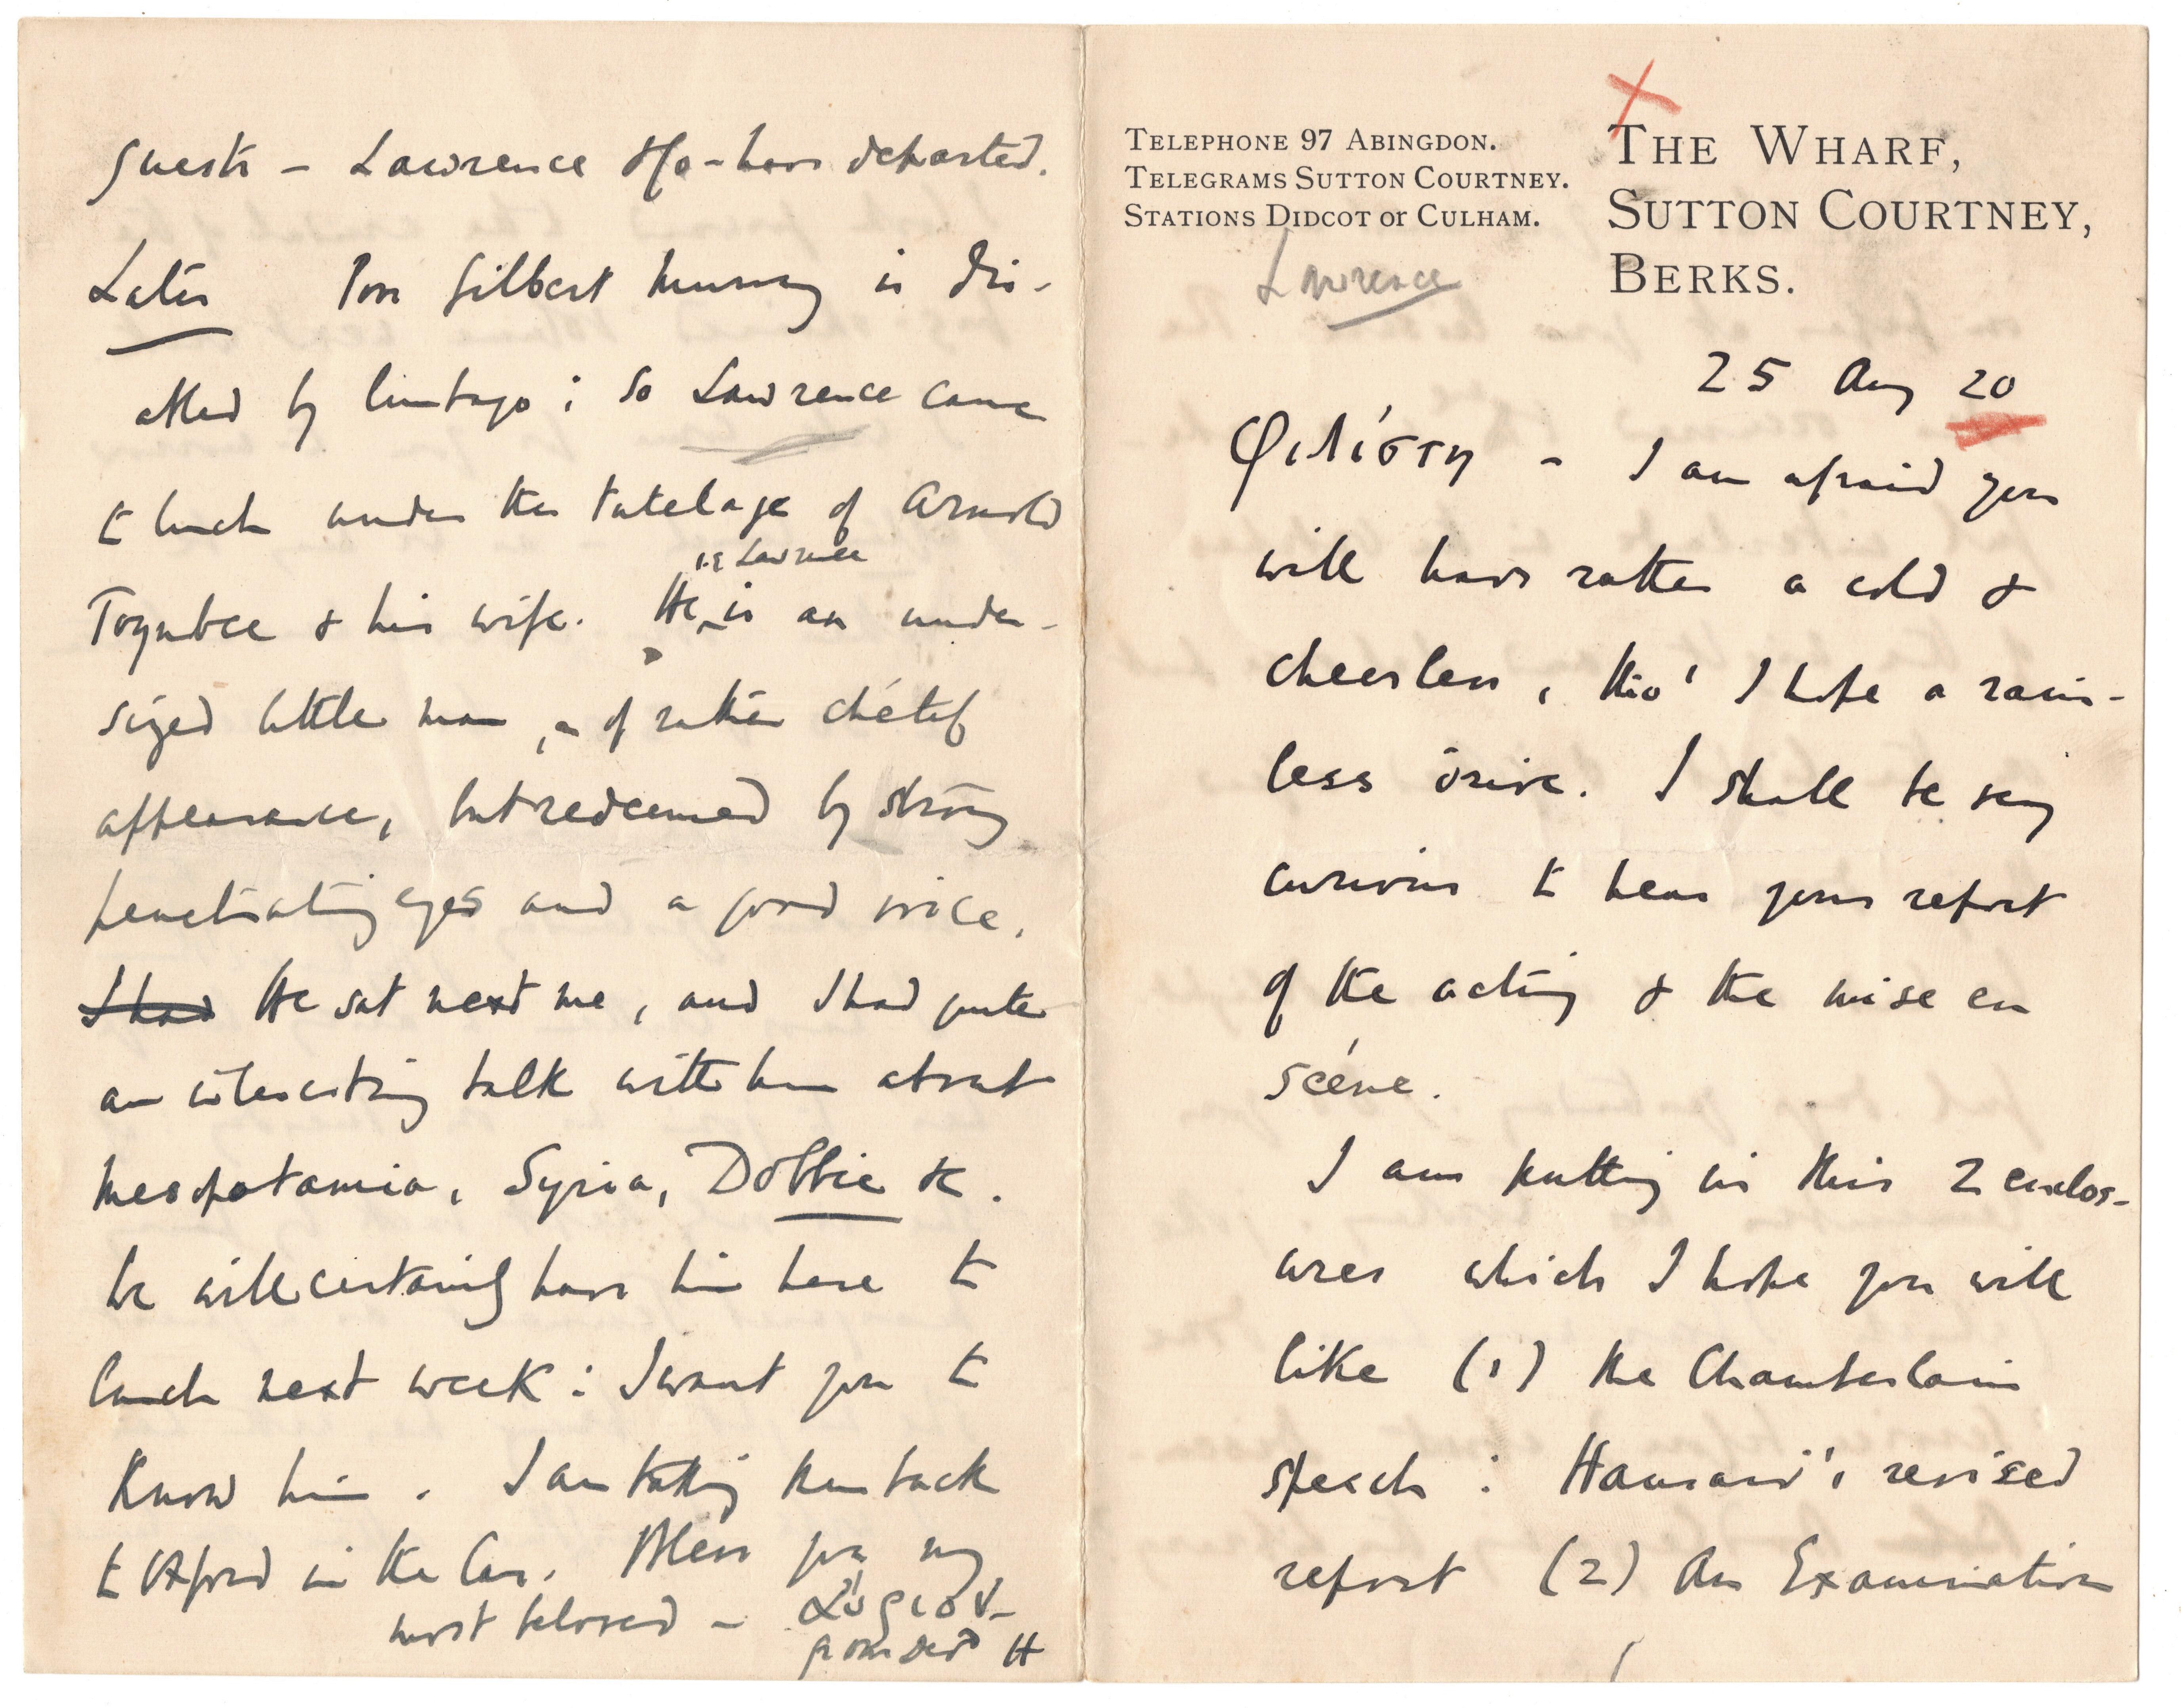 guests – Lawrence &c – have departed.
Later Poor Gilbert Murray is dis-
abled by lumbago: so Lawrence came
to lunch under the tutelage of Arnold
Toynbee & his wife. He is an under-
i.e. Lawrence
sized little man, of rather chétif
appearance, but redeemed by strong
penetrating eyes and a good voice.
I had He sat next me, and I had quite
an interesting talk with him about
Mesopotamia, Syria, Dobbie &c.
We will certainly have him here to
lunch next week: I want you to
know him. I am taking them back
to Oxford in the Car. Bless you my
most beloved –
H
TELEPHONE 97 ABINGDON.
TELEGRAMS SUTTON COURTNEY.
STATIONS DIDCOT or CULHAM.
THE WHARF,
SUTTON COURTNEY,
BERKS.
Lawrence
25 Aug 20
Φιλίστη – I am afraid you
will have rather a cold &
cheerless, tho' I hope a rain-
less drive. I shall be very
curious to hear your report
of the acting & the mise en
scéne.
I am putting in this 2 enclos-
ures which I hope you will
like (1) the Chamberlain
speech: Hansard's revised
report (2) An Examination